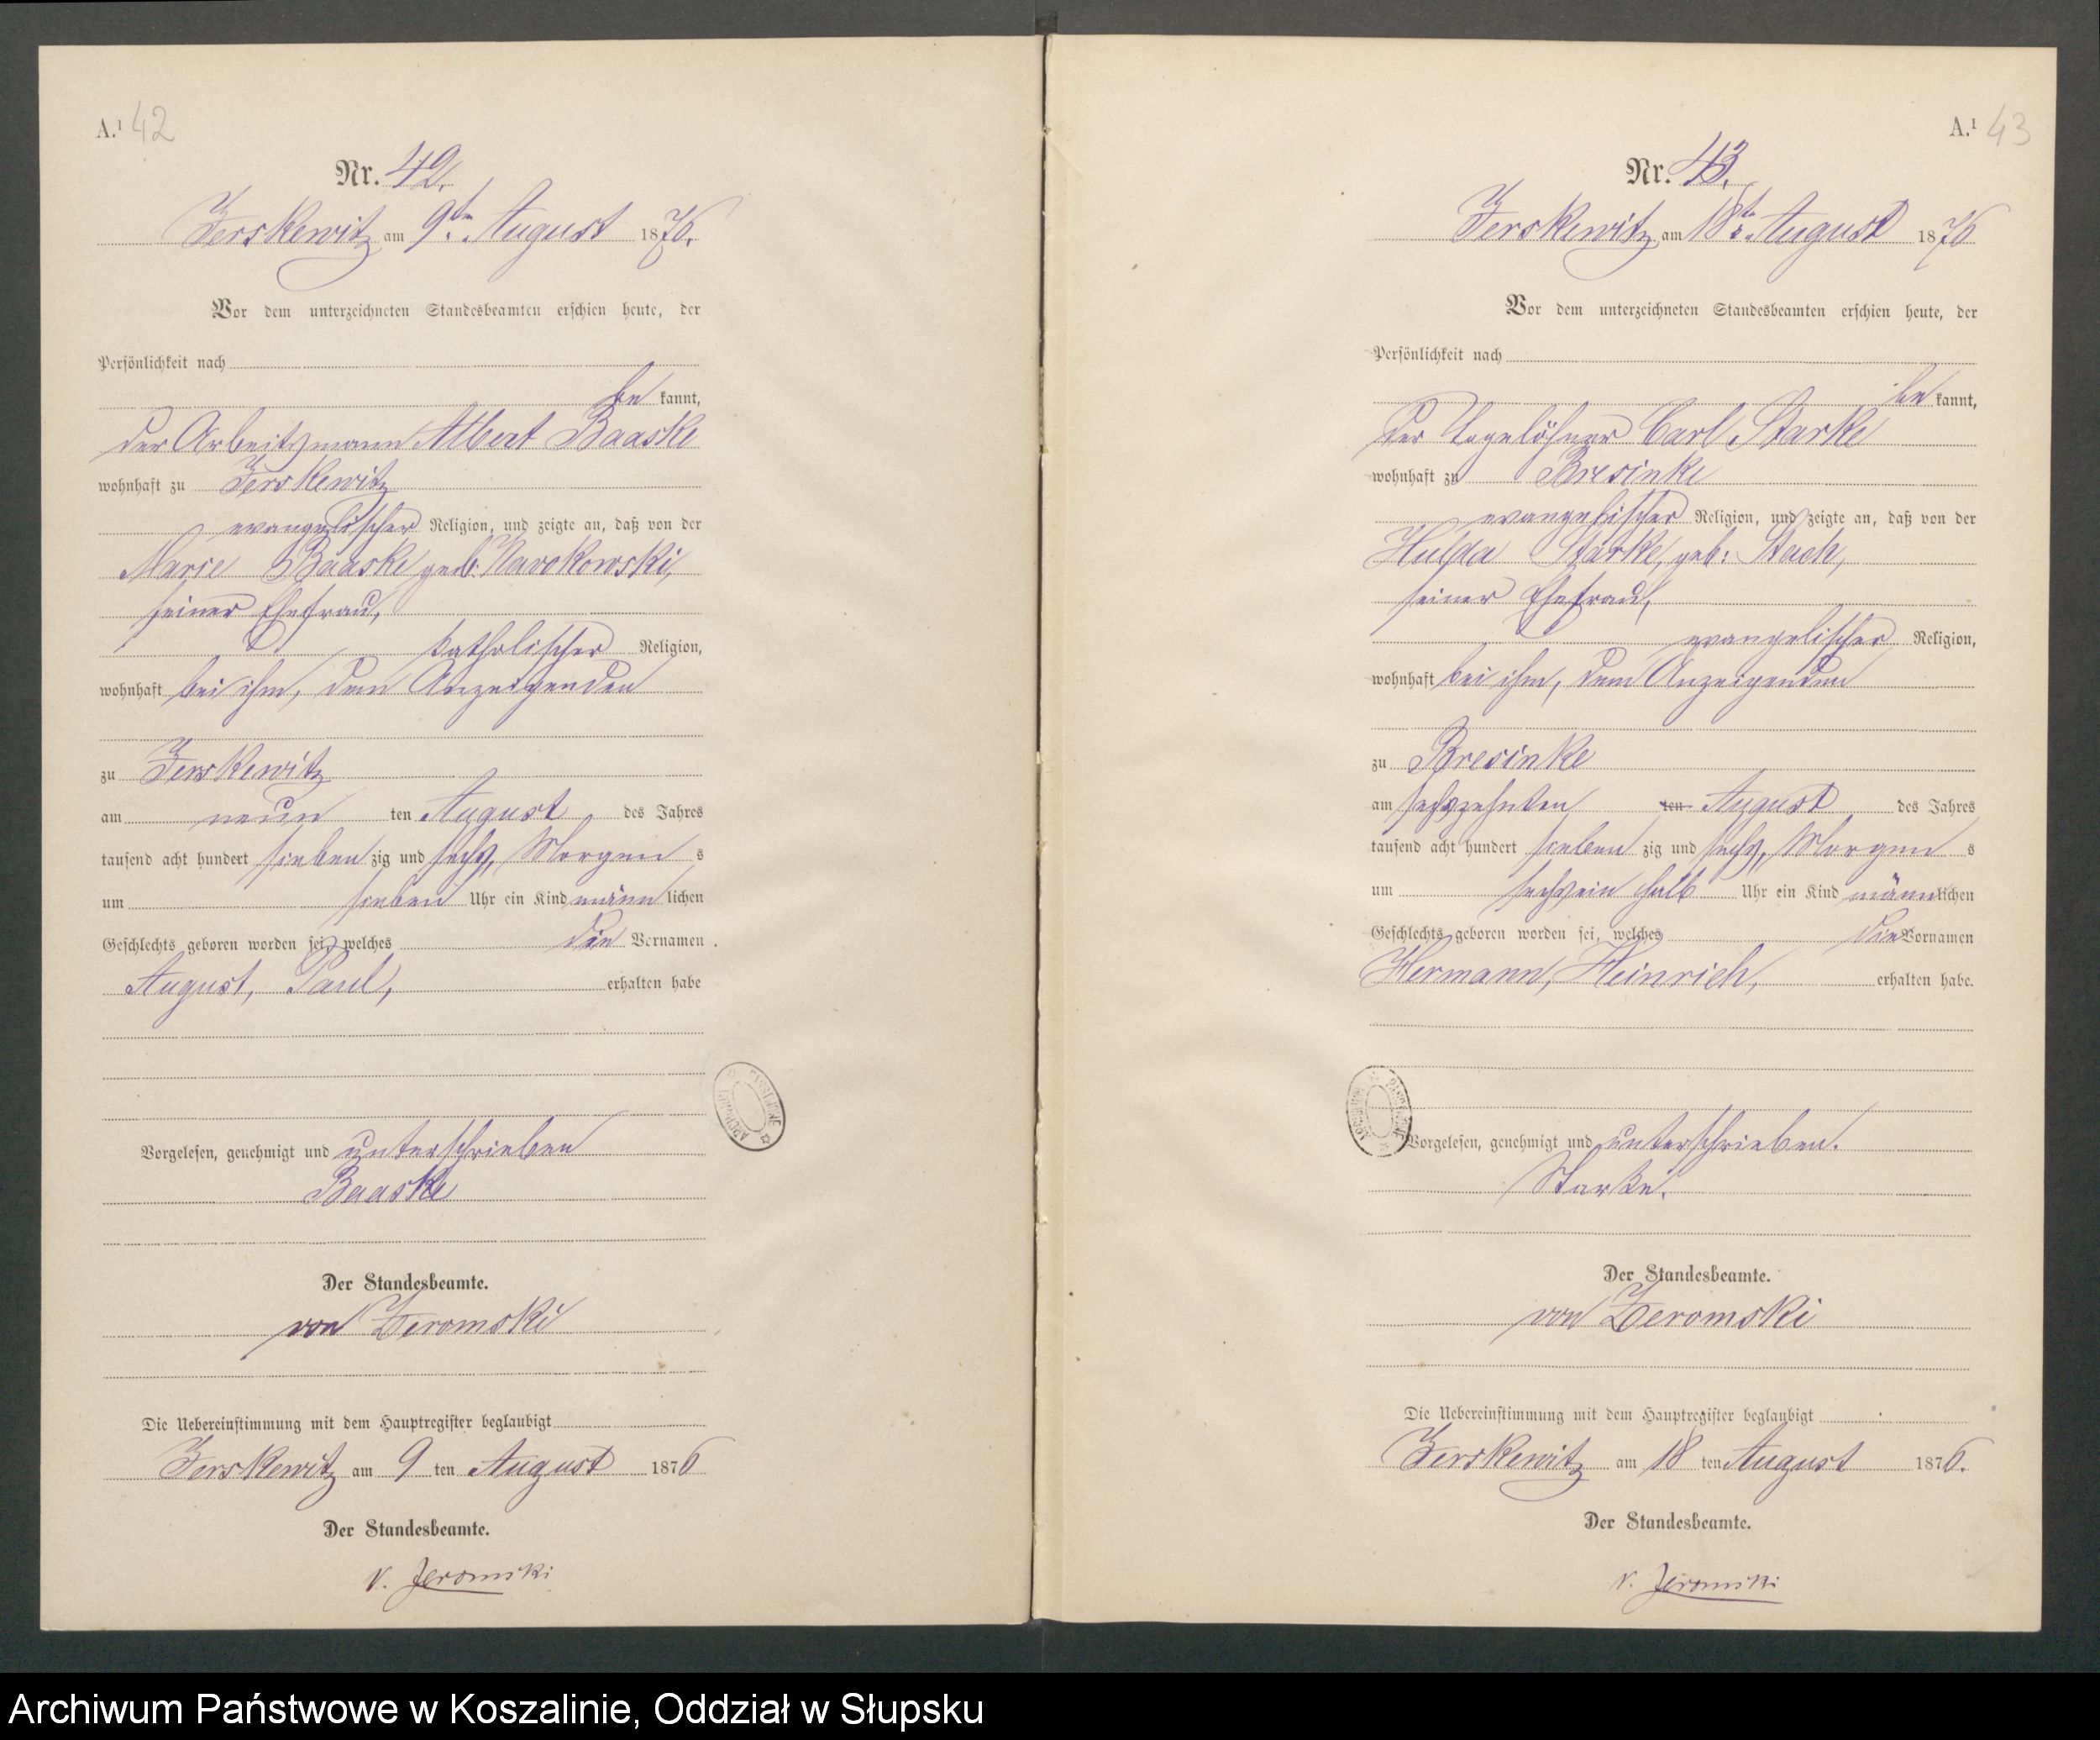 A.¹ 42
Nr. 42.
Jerskewitz am 9ten August 1876.
Vor dem unterzeichneten Standesbeamten erschien heute, der
Persönlichkeit nach
be kannt,
der Arbeitsmann Albert Baaske
wohnhaft zu Jerskewitz
evangelischer Religion, und zeigte an, daß von der
Marie Baaske geb. Narokowski,
seiner Ehefrau,
katholischer Religion,
wohnhaft bei ihm, dem Anzeigenden
zu Jerskewitz
am neun ten August des Jahres
tausend acht hundert sieben zig und sechs, Morgen s
um sieben Uhr ein Kind männ lichen
Geschlechts geboren worden sei, welches die Vornamen
August, Paul, erhalten habe
Vorgelesen, genehmigt und unterschrieben
Baaske
Der Standesbeamte.
von Zeromski
Die Uebereinstimmung mit dem Hauptregister beglaubigt
Jerskewitz am 9 ten August 1876
Der Standesbeamte.
v. Zeromski
A.¹ 43
Nr. 43.
Jerskewitz am 18ten August 1876
Vor dem unterzeichneten Standesbeamten erschien heute, der
Persönlichkeit nach
be kannt,
der Tagelöhner Carl Starke
wohnhaft zu Bresinke
evangelischer Religion, und zeigte an, daß von der
Hulda Starke, geb: Stach,
seiner Ehefrau,
evangelischer Religion,
wohnhaft bei ihm, dem Anzeigenden
zu Bresinke
am sechszehnten ten August des Jahres
tausend acht hundert sieben zig und sechs, Morgen s
um sechsein halb Uhr ein Kind männlichen
Geschlechts geboren worden sei, welches die Vornamen
Hermann, Heinrich, erhalten habe.
Vorgelesen, genehmigt und unterschrieben.
Starke.
Der Standesbeamte.
von Zeromski
Die Uebereinstimmung mit dem Hauptregister beglaubigt
Jerskewitz am 18 ten August 1876.
Der Standesbeamte.
v. Zeromski
Archiwum Państwowe w Koszalinie, Oddział w Słupsku